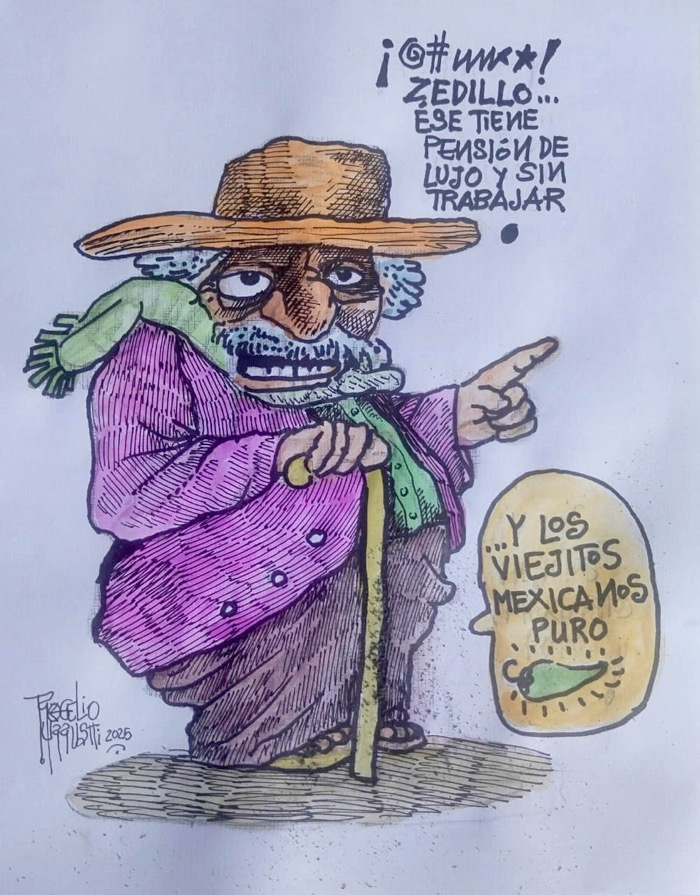 ¡@#
ZEDILLO...
ÉSE TIENE
PENSIÓN DE
LUJO Y SIN
TRABAJAR
...Y LOS
VIEJITOS
MEXICANOS
PURO
ROGELIO
2025